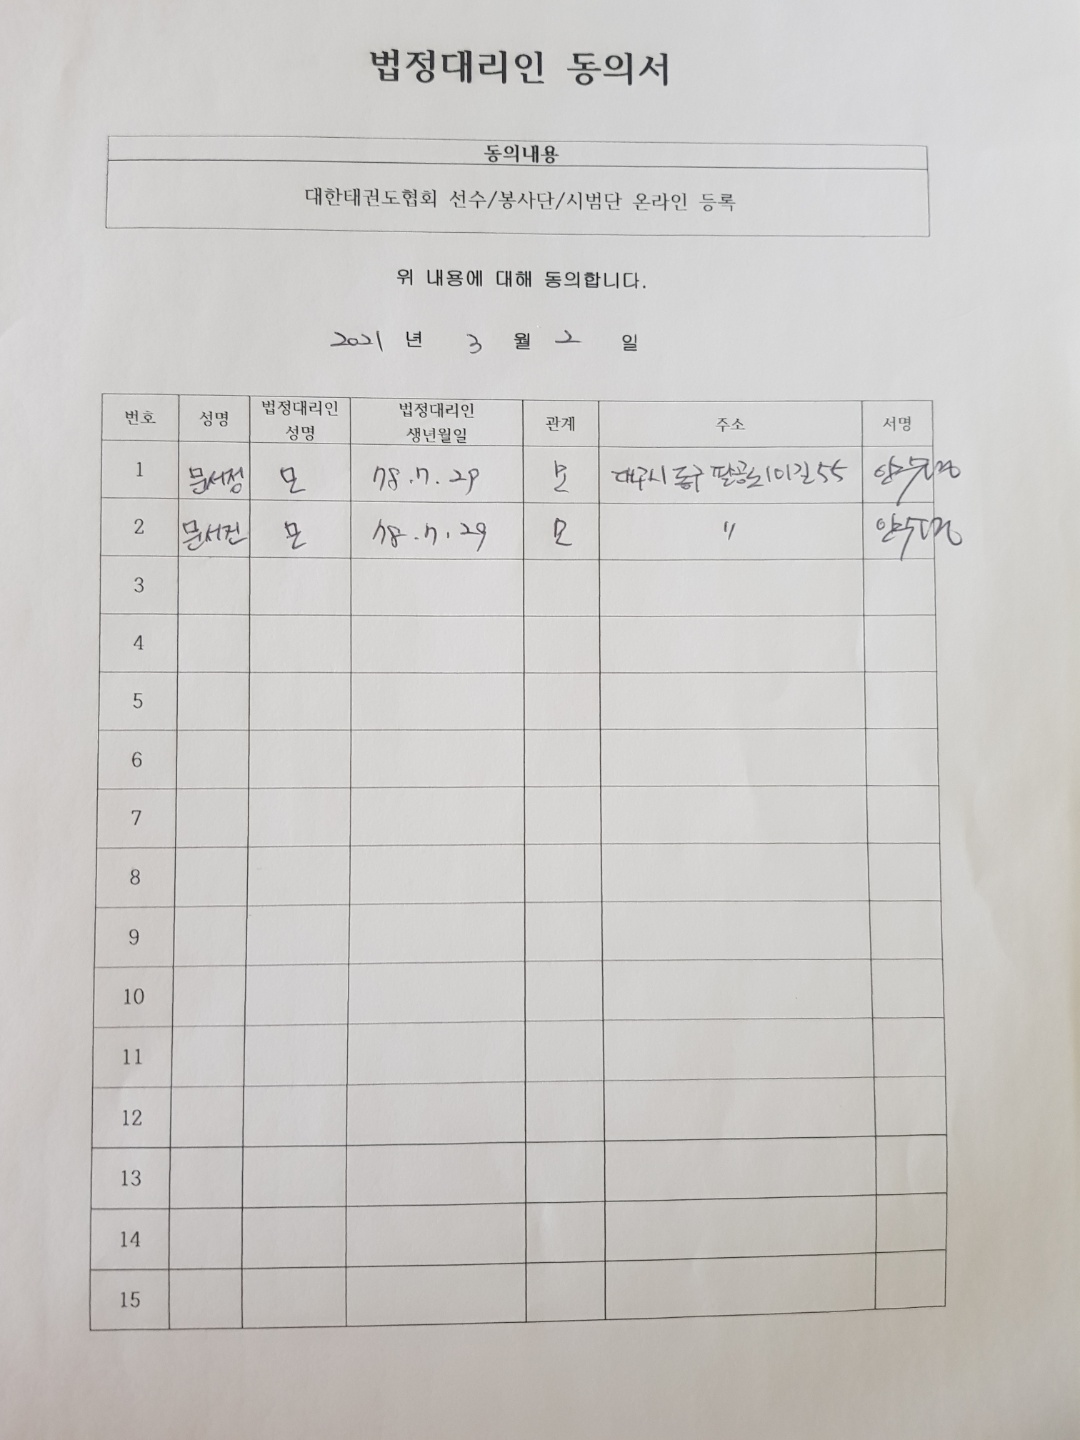 법정대리인 동의서
동의내용
대한태권도협회 선수/봉사단/시범단 온라인 등록
위 내용에 대해 동의합니다.
2021 년 3 월 2 일
번호 성명 법정대리인 성명 법정대리인 생년월일 관계 주소 서명
1 문서정 모 78.7.29 모 대구시 동구 팔공로101길55
2 문서진 모 78.7.29 모 〃
3
4
5
6
7
8
9
10
11
12
13
14
15